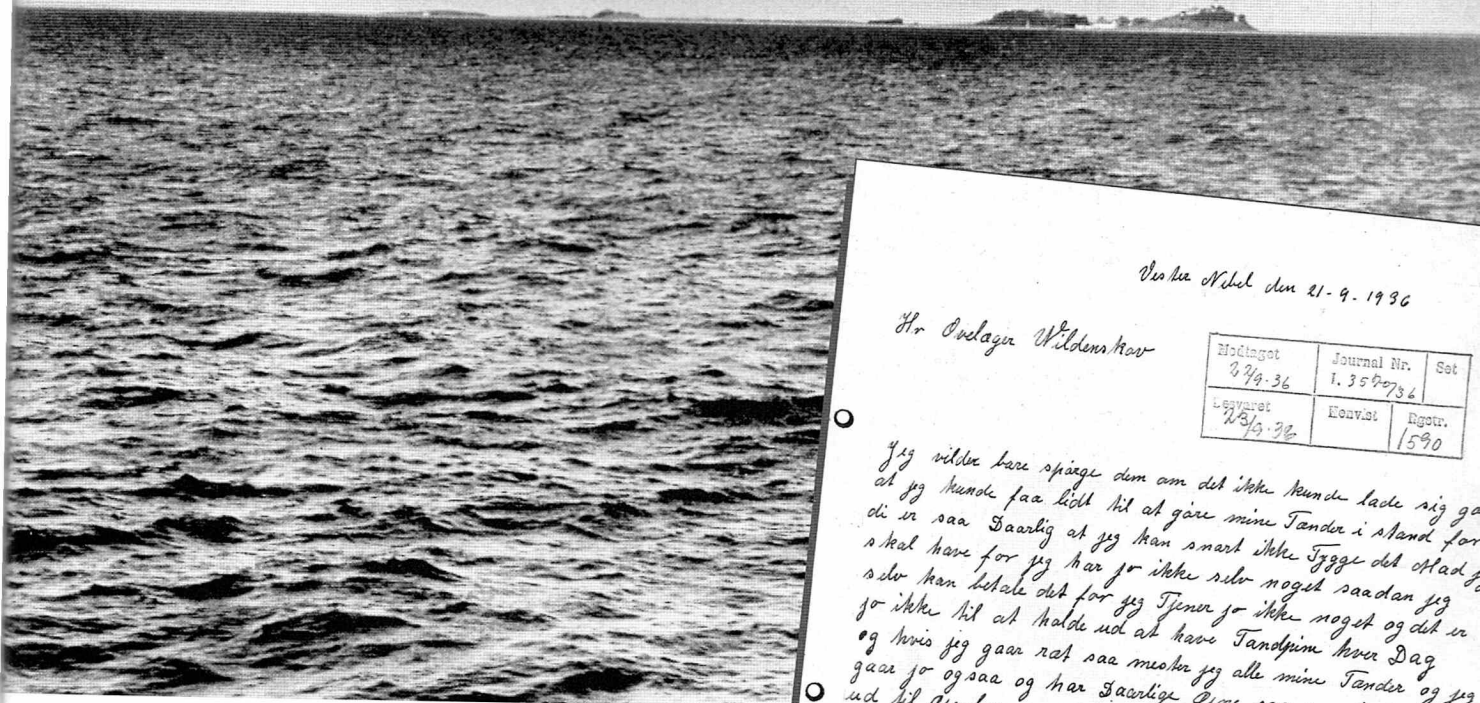 Vester Nebel den 21-9-1936
Hr Ovelæger Wildenskov
Modtaget Journal Nr. Set
22/9-36 1.
Besvaret Henvist Rgstr.
23/9-36 1590
Jeg vilder bare spörge dem om det ikke kunde lade sig gö
at jeg kunde faa lidt til at göre mine Tænder i stand for
di er saa Daarlig at jeg kan snart ikke Tygge det Mad j
skal have for jeg har jo ikke selv noget saadan jeg
selv kan betale det for jeg Tjener jo ikke noget og det er
jo ikke til at holde ud at have Tandpine hver Dag
og hvis jeg gaar ræt saa mester jeg alle mine Tænder og jeg
gaar jo ogsaa og har Daarlige
ud til